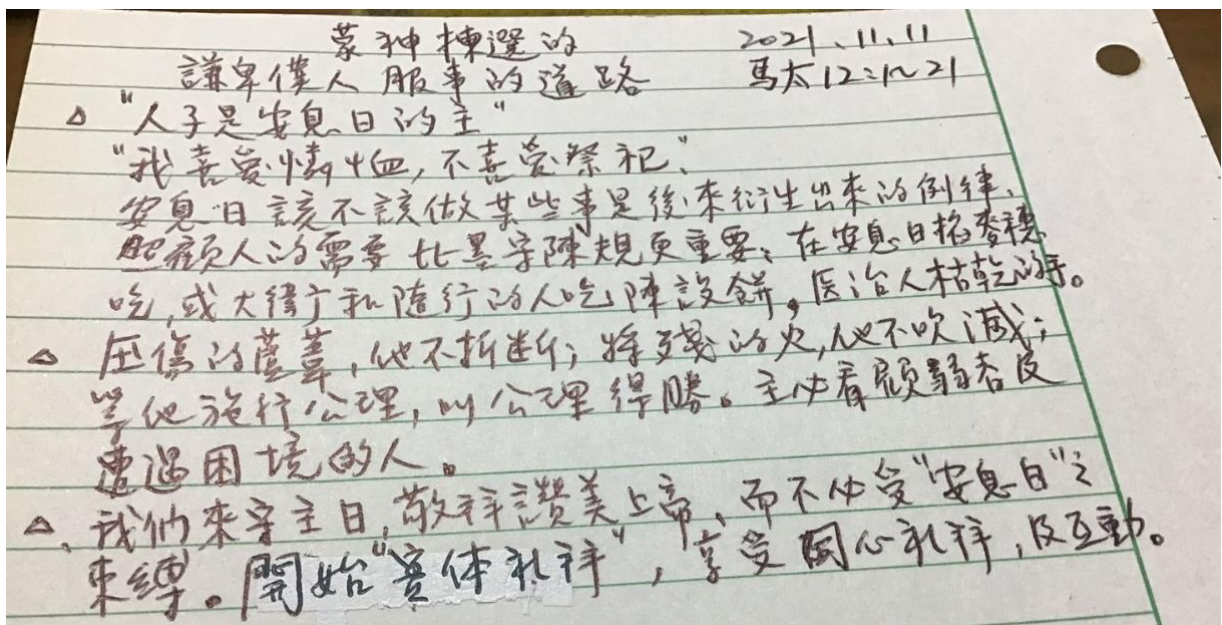 蒙神揀選的 2021、11、11
謙卑僕人服事的道路 馬太12:1~21
△ "人子是安息日的主"
"我喜愛憐恤,不喜愛祭祀"、
安息日該不該做某些事是後來衍生出來的例律、
照顧人的需要比墨守陳規更重要;在安息日掐麥穗
吃,或大衛王和隨行的人吃陳設餅。医治人枯乾的手。
△ 压傷的蘆葦,他不折断;將殘的火,他不吹滅;
等他施行公理,叫公理得勝。主必看顧弱者及
遭遇困境的人。
△、我們來守主日,敬拜讚美上帝、而不必受"安息日"之
束縛。開始"实体礼拜",享受同心礼拜,及互動。